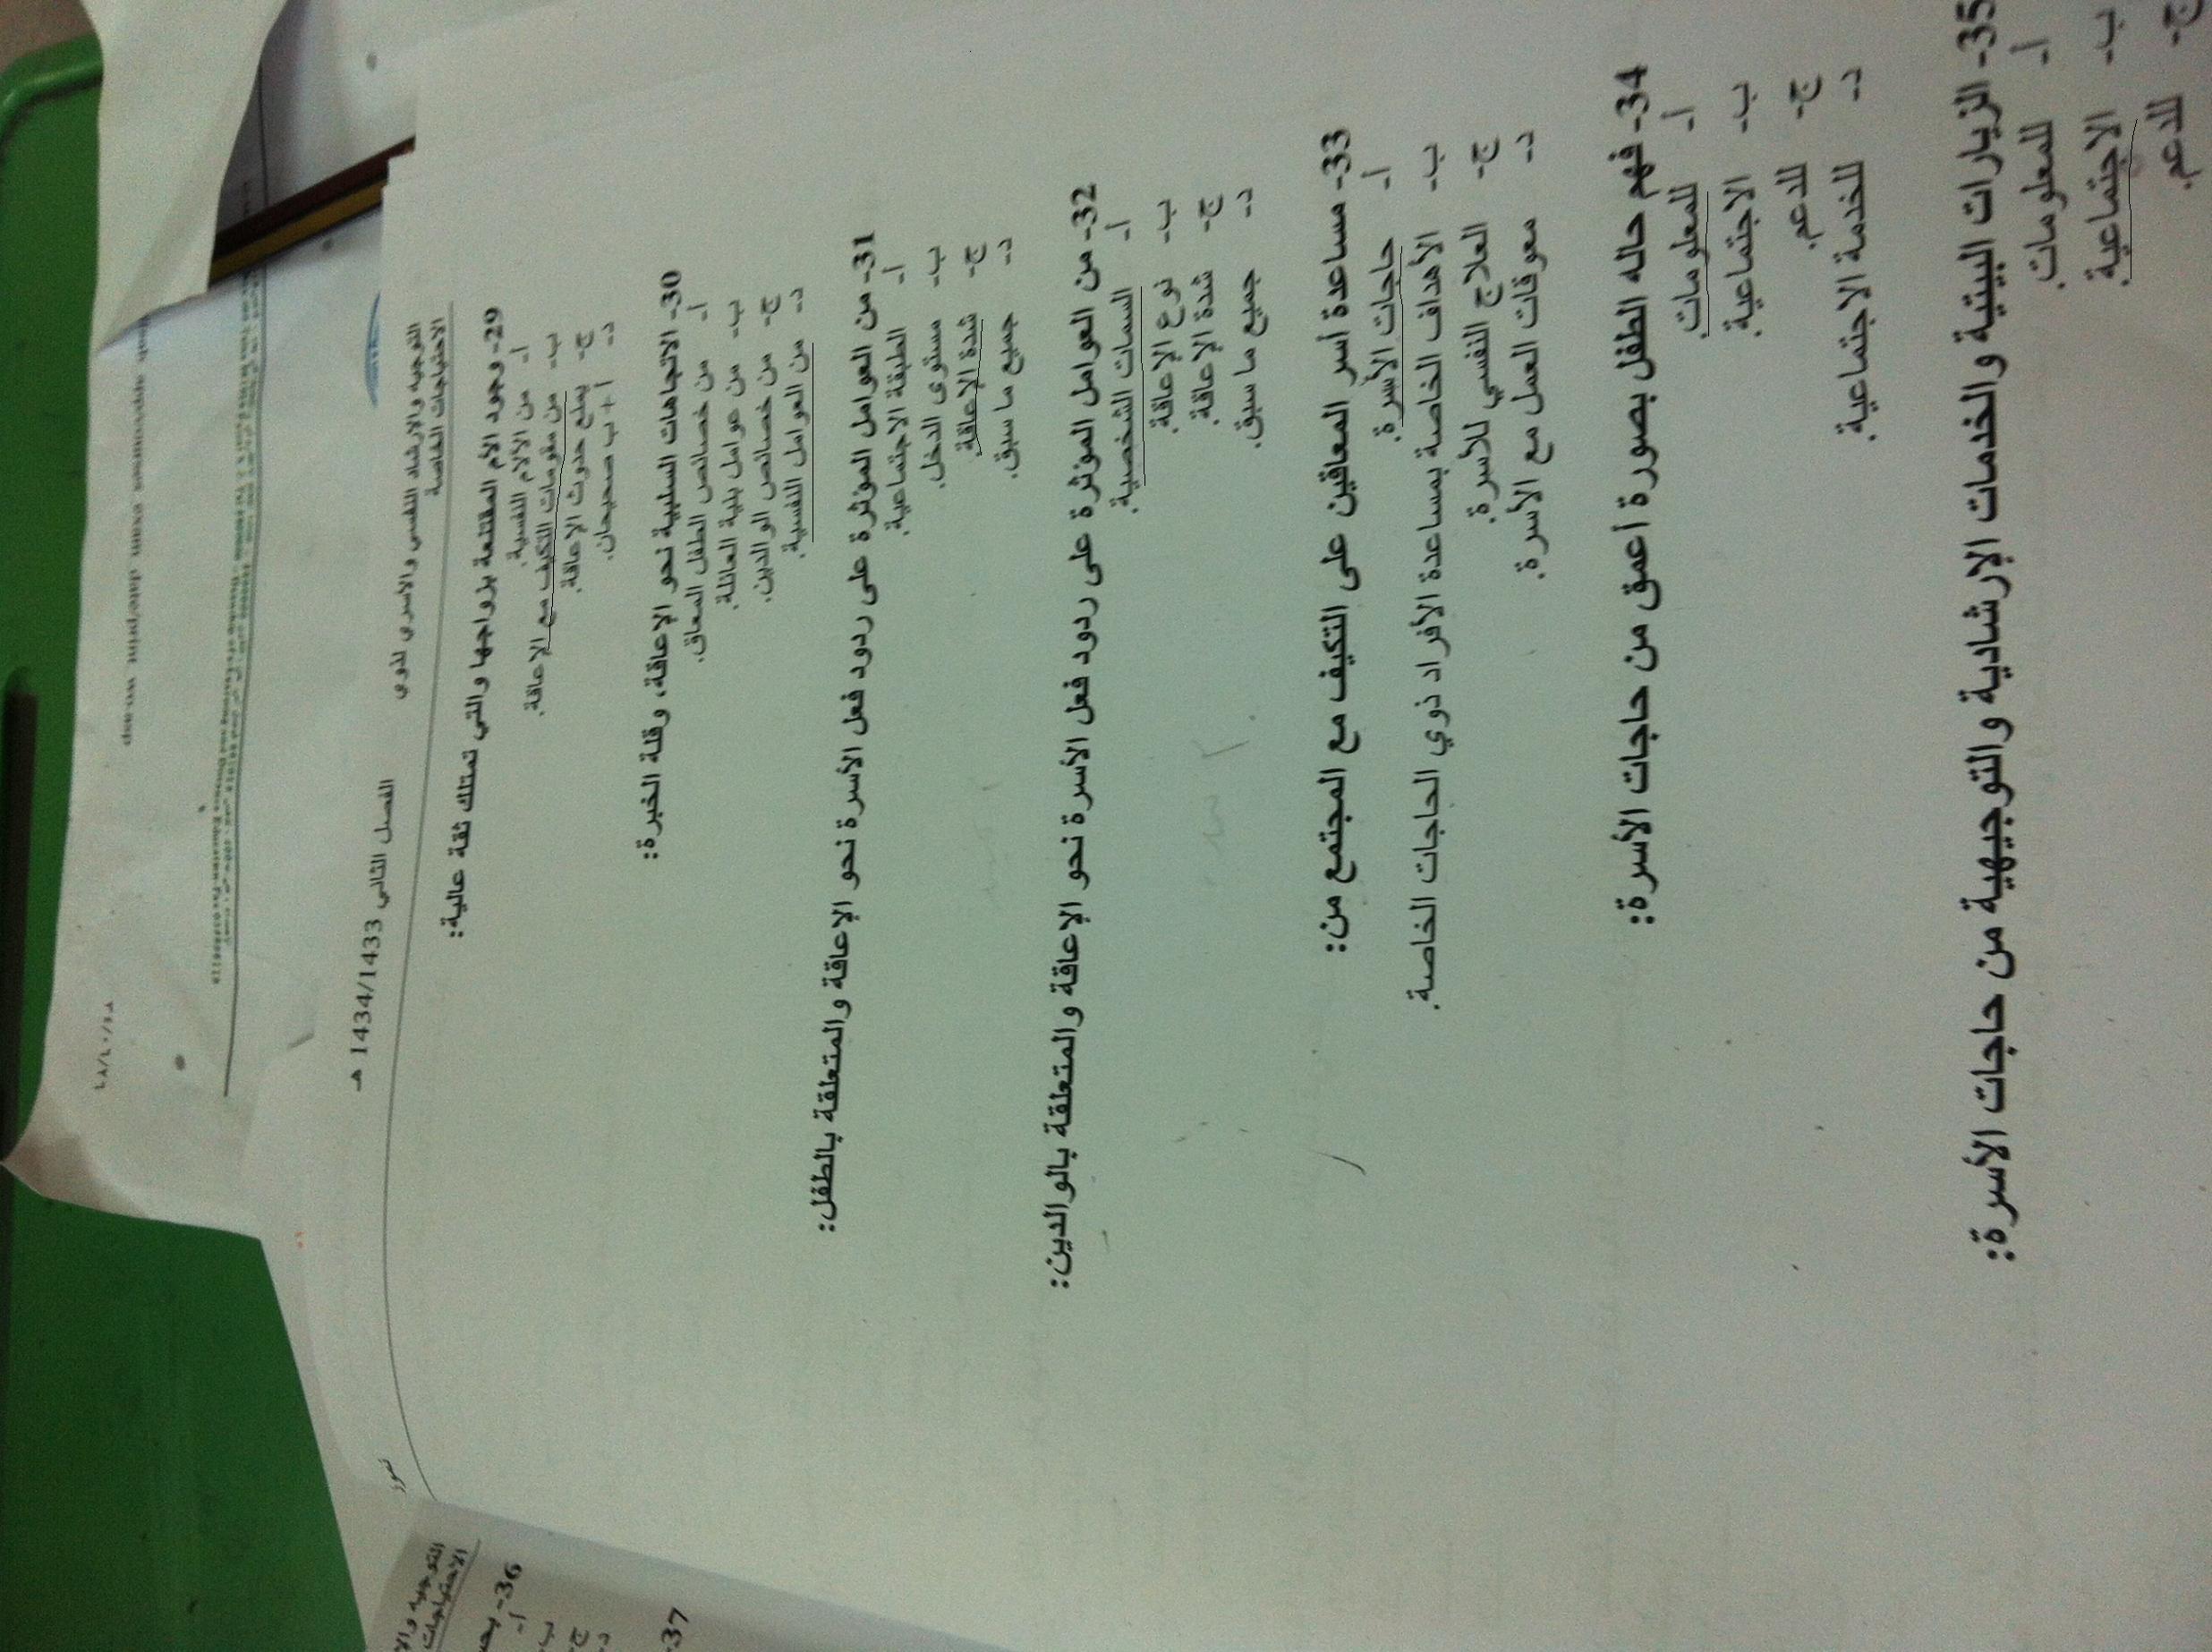 التوجيه والإرشاد النفسي والأسري لذوي الاحتياجات الخاصة
الفصل الثاني 1434/1433 هـ
29- وجود الأم المقتنعة بزواجها والتي تمتلك ثقة عالية:
أ- من الآلام النفسية.
ب- من مقومات التكيف مع الإعاقة.
ج- يمنع حدوث الإعاقة.
د- أ + ب صحيحان.
30- الاتجاهات السلبية نحو الإعاقة، وقلة الخبرة:
أ- من خصائص الطفل المعاق.
ب- من عوامل بنية العائلة.
ج- من خصائص الوالدين.
د- من العوامل النفسية.
31- من العوامل المؤثرة على ردود فعل الأسرة نحو الإعاقة والمتعلقة بالطفل:
أ- الطبقة الاجتماعية.
ب- مستوى الدخل.
ج- شدة الإعاقة.
د- جميع ما سبق.
32- من العوامل المؤثرة على ردود فعل الأسرة نحو الإعاقة والمتعلقة بالوالدين:
أ- السمات الشخصية.
ب- نوع الإعاقة.
ج- شدة الإعاقة.
د- جميع ما سبق.
33- مساعدة أسر المعاقين على التكيف مع المجتمع من:
أ- حاجات الأسرة.
ب- الأهداف الخاصة بمساعدة الأفراد ذوي الحاجات الخاصة.
ج- العلاج النفسي للأسرة.
د- معوقات العمل مع الأسرة.
34- فهم حاله الطفل بصورة أعمق من حاجات الأسرة:
أ- للمعلومات.
ب- الاجتماعية.
ج- للدعم.
د- للخدمة الاجتماعية.
35- الزيارات البيتية والخدمات الإرشادية والتوجيهية من حاجات الأسرة:
أ- للمعلومات.
ب- الاجتماعية.
ج- للدعم.
التوجيه والإ
الاحتياجات
36-
أ-
ب-
ج-
د-
37-